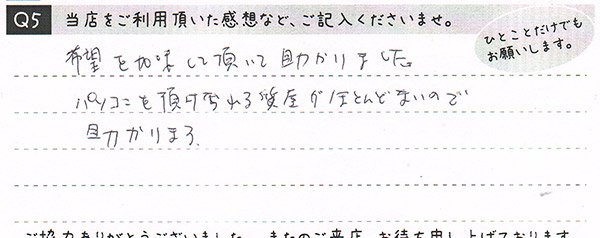 Q5 当店をご利用頂いた感想など、ご記入くださいませ。
ひとことだけでも
お願いします。
希望を加味して頂いて助かりました。
パソコンを預けられる質屋がほとんどないので
助かります。
ご協力ありがとうございました。またのご来店、お待ち申し上げております。